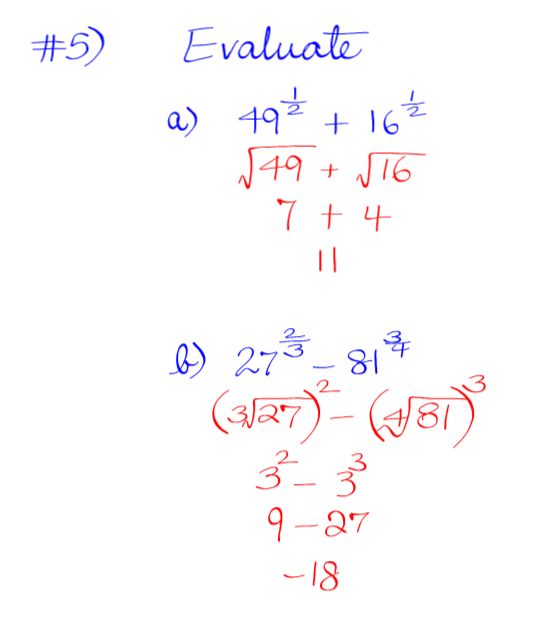 #5) Evaluate
a) 49^{1/2} + 16^{1/2}
√49 + √16
7 + 4
11
b) 27^{2/3} - 81^{3/4}
(∛27)² - (∜81)³
3² - 3³
9 - 27
-18